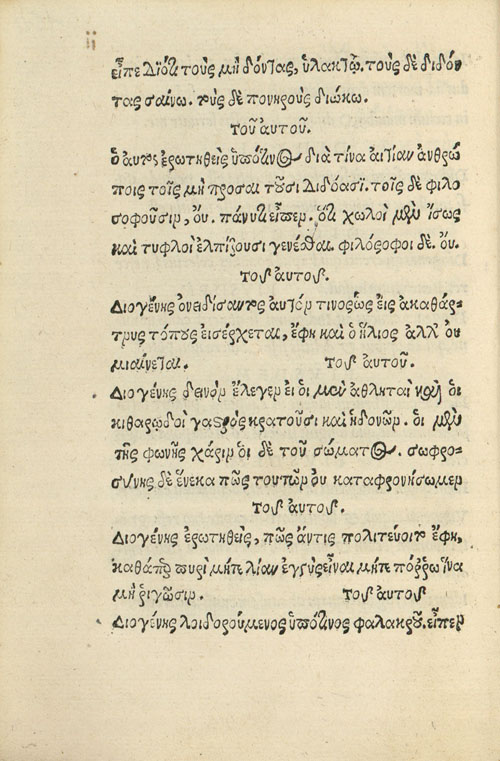 ii
εἶπε Διότι τοὺς μὴ δόντας, ὑλακτῶ. τοὺς δὲ διδόν
τας σαίνω. τοὺς δὲ πονηροὺς διώκω.
τοῦ αὐτοῦ.
ὁ αὐτὸς ἐρωτηθεὶς ὑπό τινος διὰ τίνα αἰτίαν ἀνθρώ
ποις τοῖς μὴ προσαιτοῦσι διδόασι. τοῖς δὲ φιλο
σοφοῦσιν, οὔ. εἶπεν. ὅτι χωλοὶ μὲν ἴσως
καὶ τυφλοὶ ἐλπίζουσι γενέσθαι. φιλόσοφοι δὲ. οὔ.
τοῦ αὐτοῦ.
Διογένης ὀνειδίσαντος αὐτόν τινος ὡς εἰς ἀκαθάρ-
τους τόπους εἰσέρχεται, ἔφη καὶ ὁ ἥλιος ἀλλ' οὐ
μιαίνεται. τοῦ αὐτοῦ.
Διογένης δεινὸν ἔλεγεν εἰ οἱ μὲν ἀθληταὶ καὶ οἱ
κιθαρῳδοὶ γαστρὸς κρατοῦσι καὶ ἡδονῶν. οἱ μὲν
τῆς φωνῆς χάριν οἱ δὲ τοῦ σώματος. σωφρο-
σύνης δὲ ἕνεκα πῶς τούτων οὐ καταφρονήσωμεν
τοῦ αὐτοῦ.
Διογένης ἐρωτηθεὶς, πῶς ἄν τις πολιτεύοιτο ἔφη,
καθάπερ πυρὶ μήτε λίαν ἐγγὺς εἶναι μήτε πόῤῥω ἵνα
μὴ ῥιγῶσιν. τοῦ αὐτοῦ
Διογένης λοιδορούμενος ὑπό τινος φαλακροῦ. εἶπεν